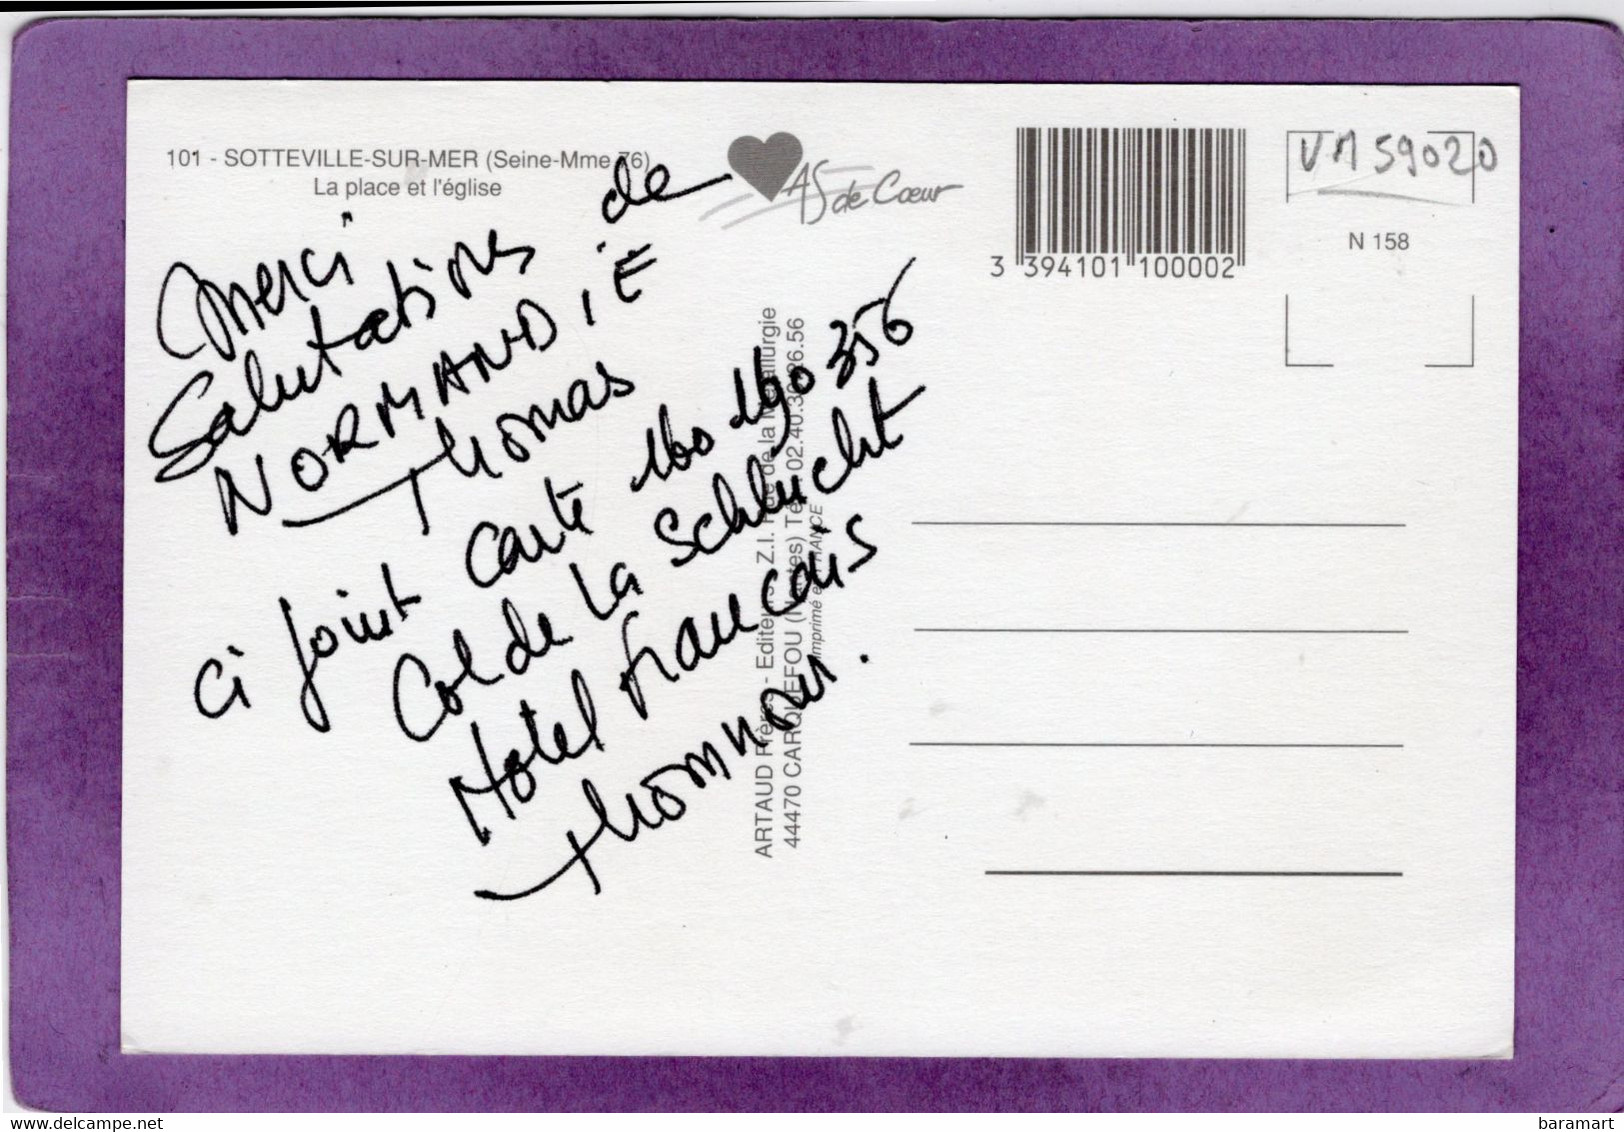 101 - SOTTEVILLE-SUR-MER (Seine-Mme 76)
La place et l'église
AS de Cœur
3 394101 100002
VM 59020
N 158
Merci
Salutations de
NORMANDiE
Thomas
ci joint carte 160 190 356
Col de La Schlucht
Hotel français
ARTAUD Frères - Editeurs - Z.I. Rue de la Métallurgie
44470 CARQUEFOU (Nantes) Tél. 02.40.30.26.56
Imprimé en FRANCE
delcampe.net
baramart